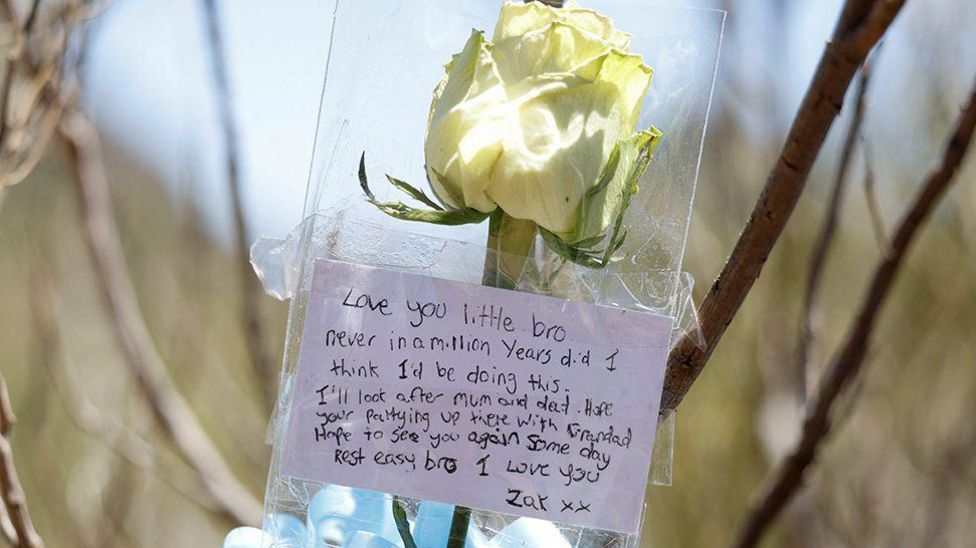 Love you little bro
never in a million years did I
think I'd be doing this.
I'll look after Mum and dad. Hope
your partying up there with Grandad
Hope to see you again some day
Rest easy bro I love you
Zak xx